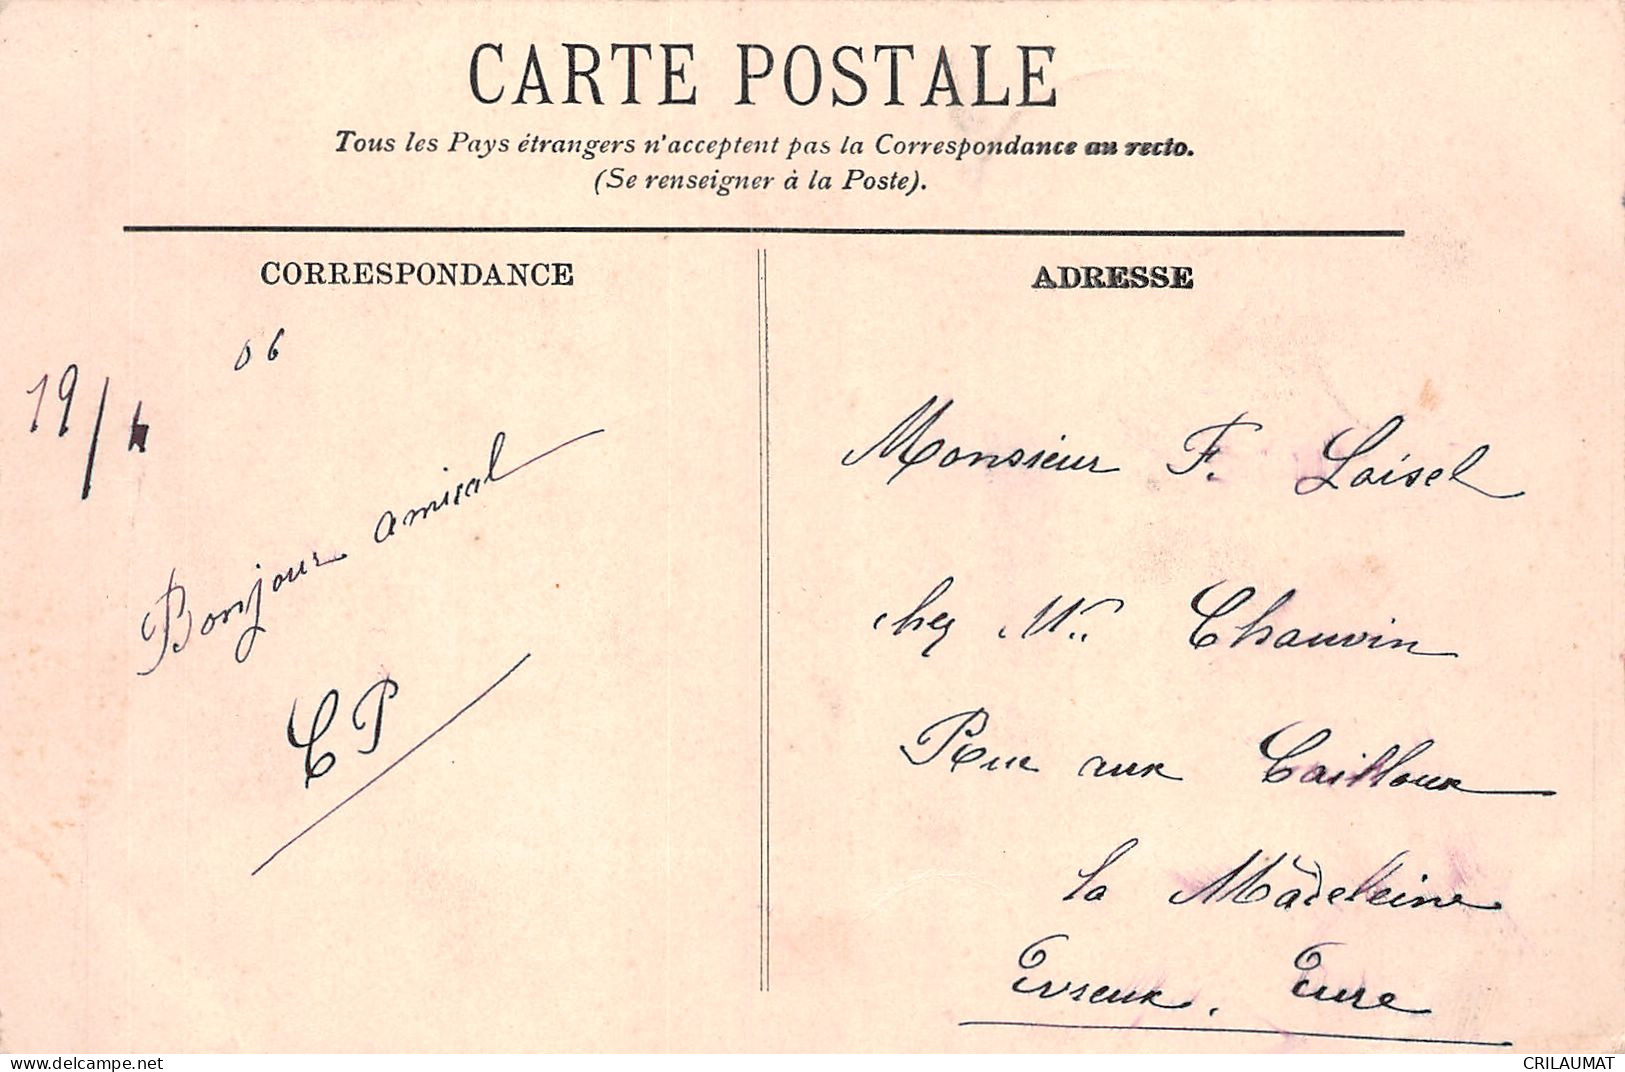 CARTE POSTALE
Tous les Pays étrangers n'acceptent pas la Correspondance au recto.
(Se renseigner à la Poste).
CORRESPONDANCE
ADRESSE
19/4 06
Bonjour amical
CP
Monsieur F. Loisel
chez Mr. Chauvin
Rue aux Cailloux
la Madeleine
Evreux. Eure
delcampe.net
CRILAUMAT